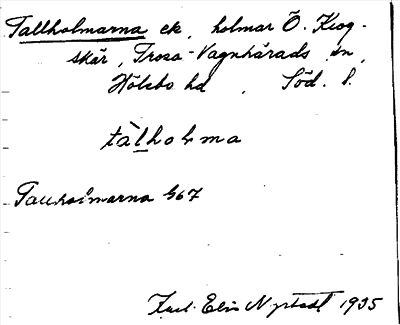 Tallholmarna ek, holmar Ö. Krog-
skär, Trosa-Vagnhärads sn,
Hölebo hd , Söd. l.
tàlholma
Tallholmarna 567
Karl Elis N 1935